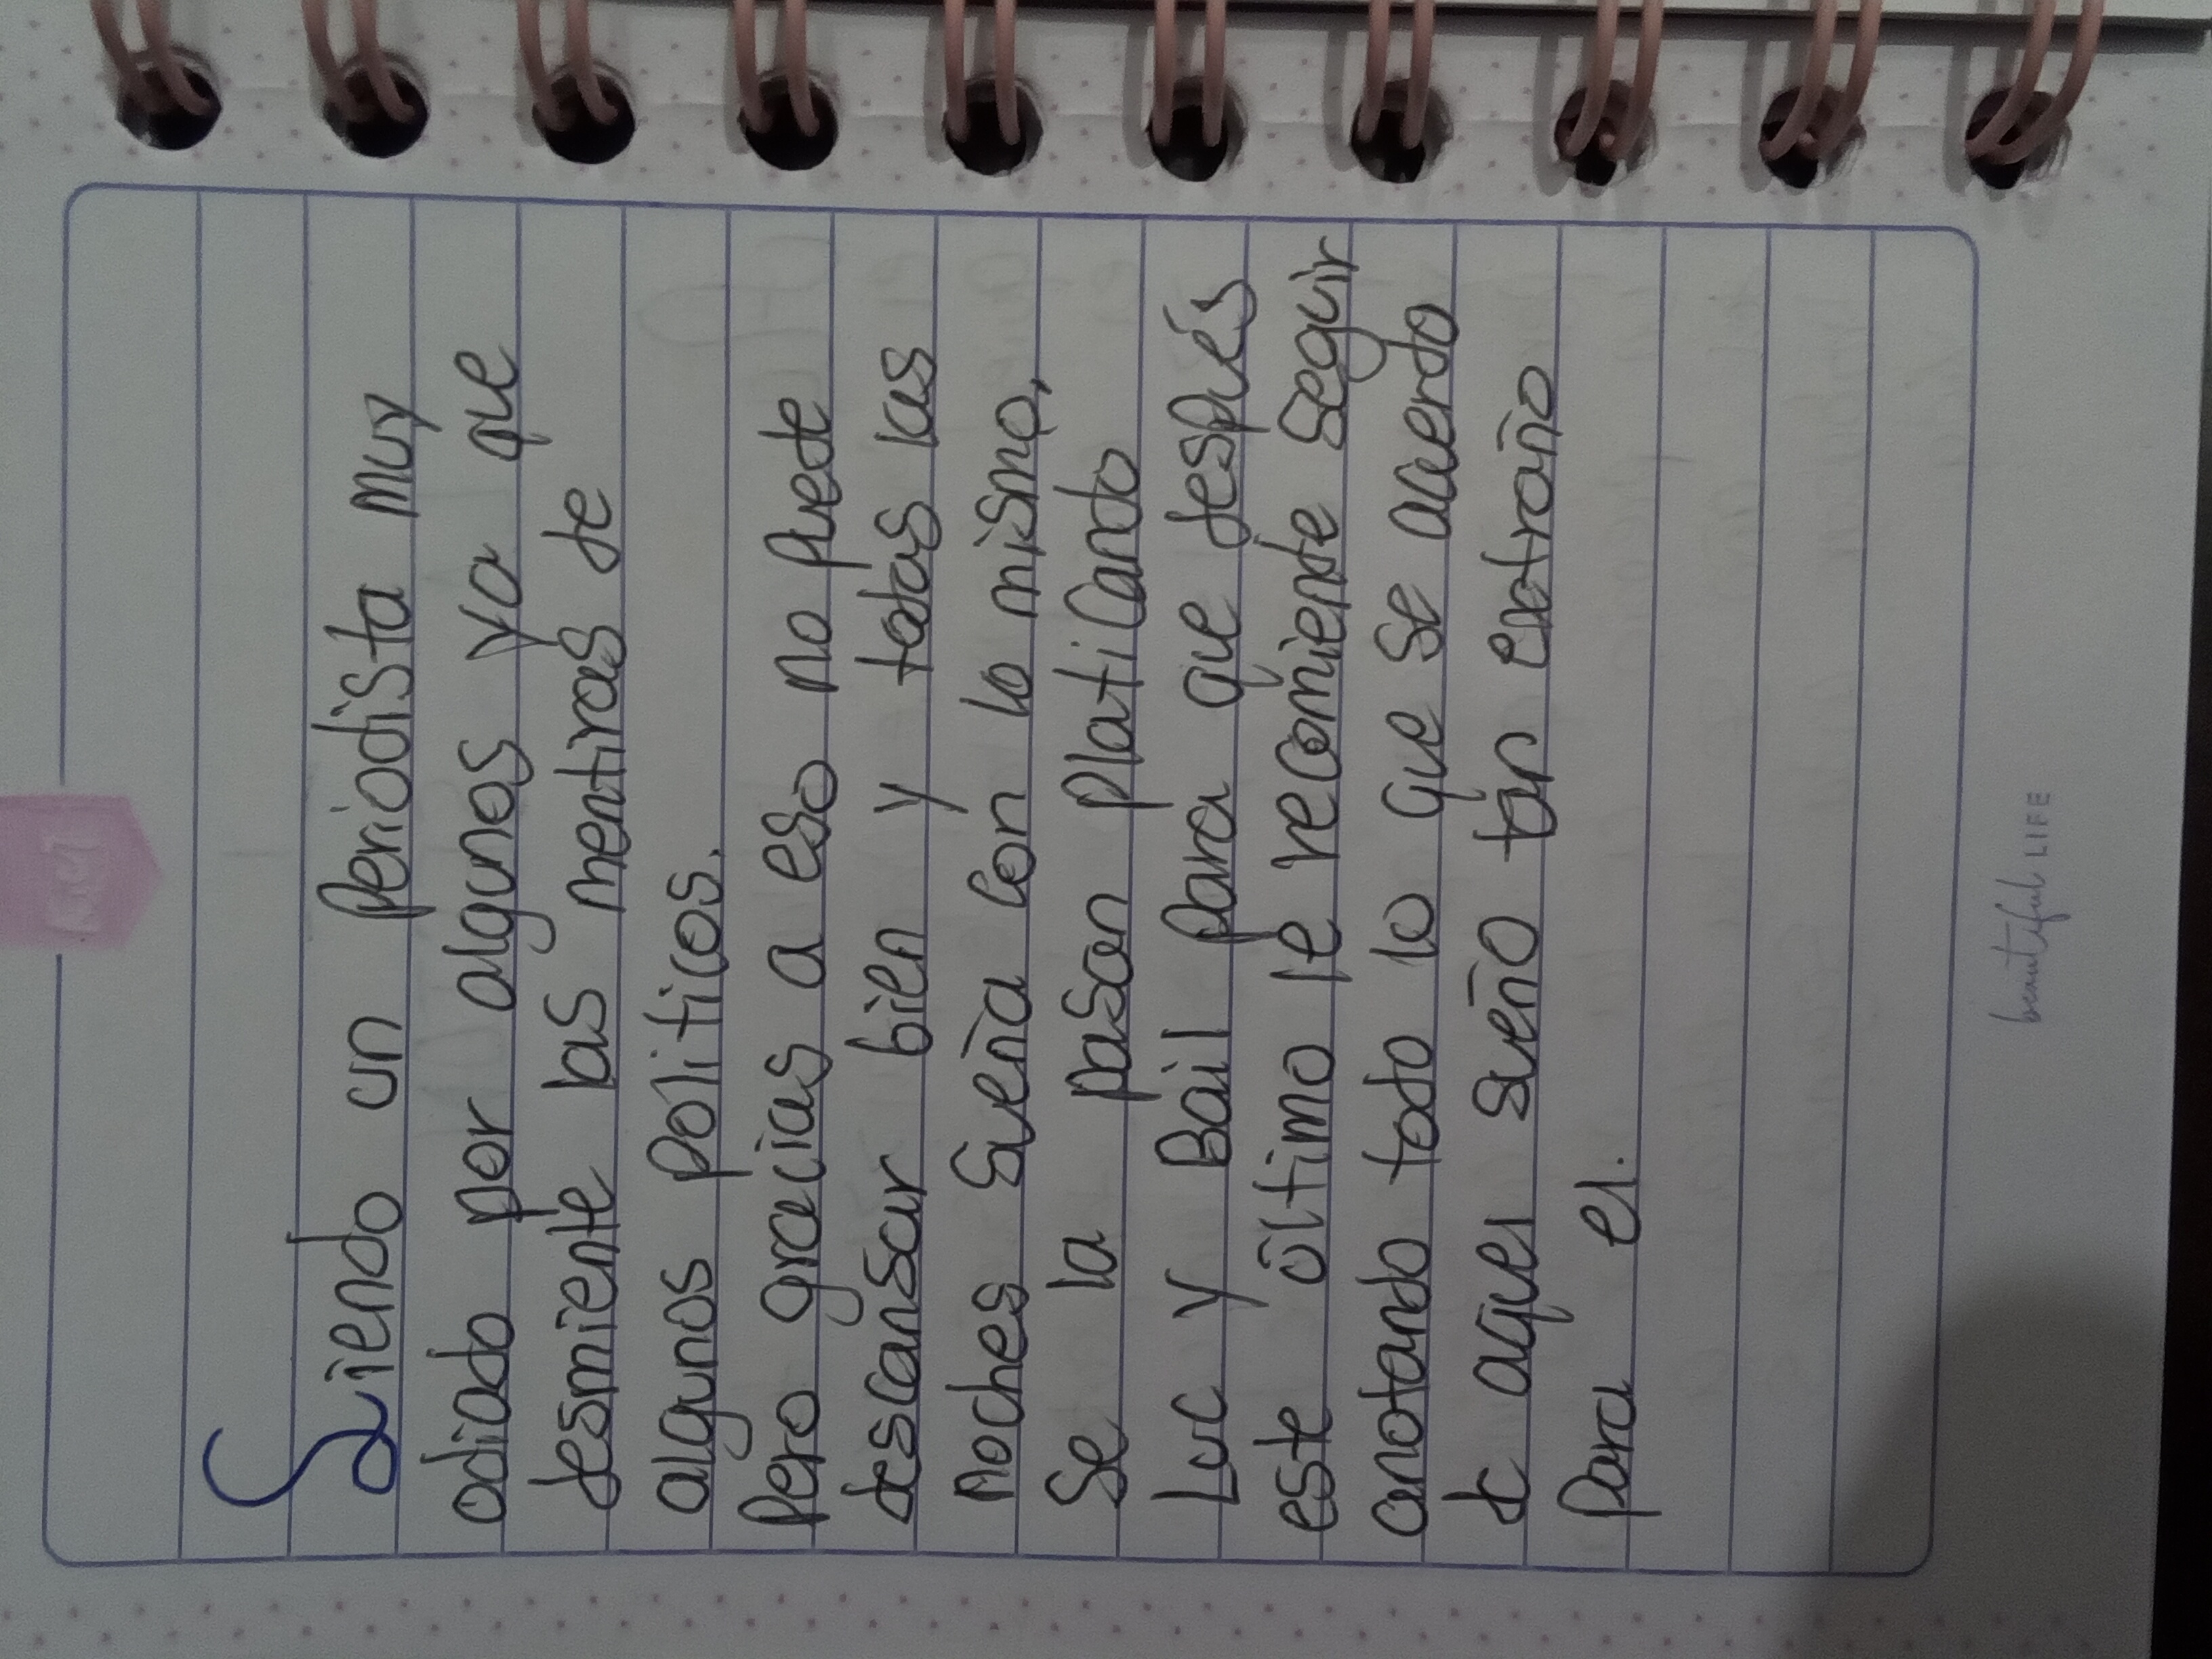 Siendo un periodista muy
odiado por algunos ya que
desmiente las mentiras de
algunos politicos.
Pero gracias a eso no puede
descansar bien y todas las
Noches Sueña con lo mismo,
Se la pasan platicando
Luc y Bail para que después
este último le recomiende seguir
anotando todo lo que se acuerda
de aquel sueño tan extraño
Para el.
beautiful LIFE